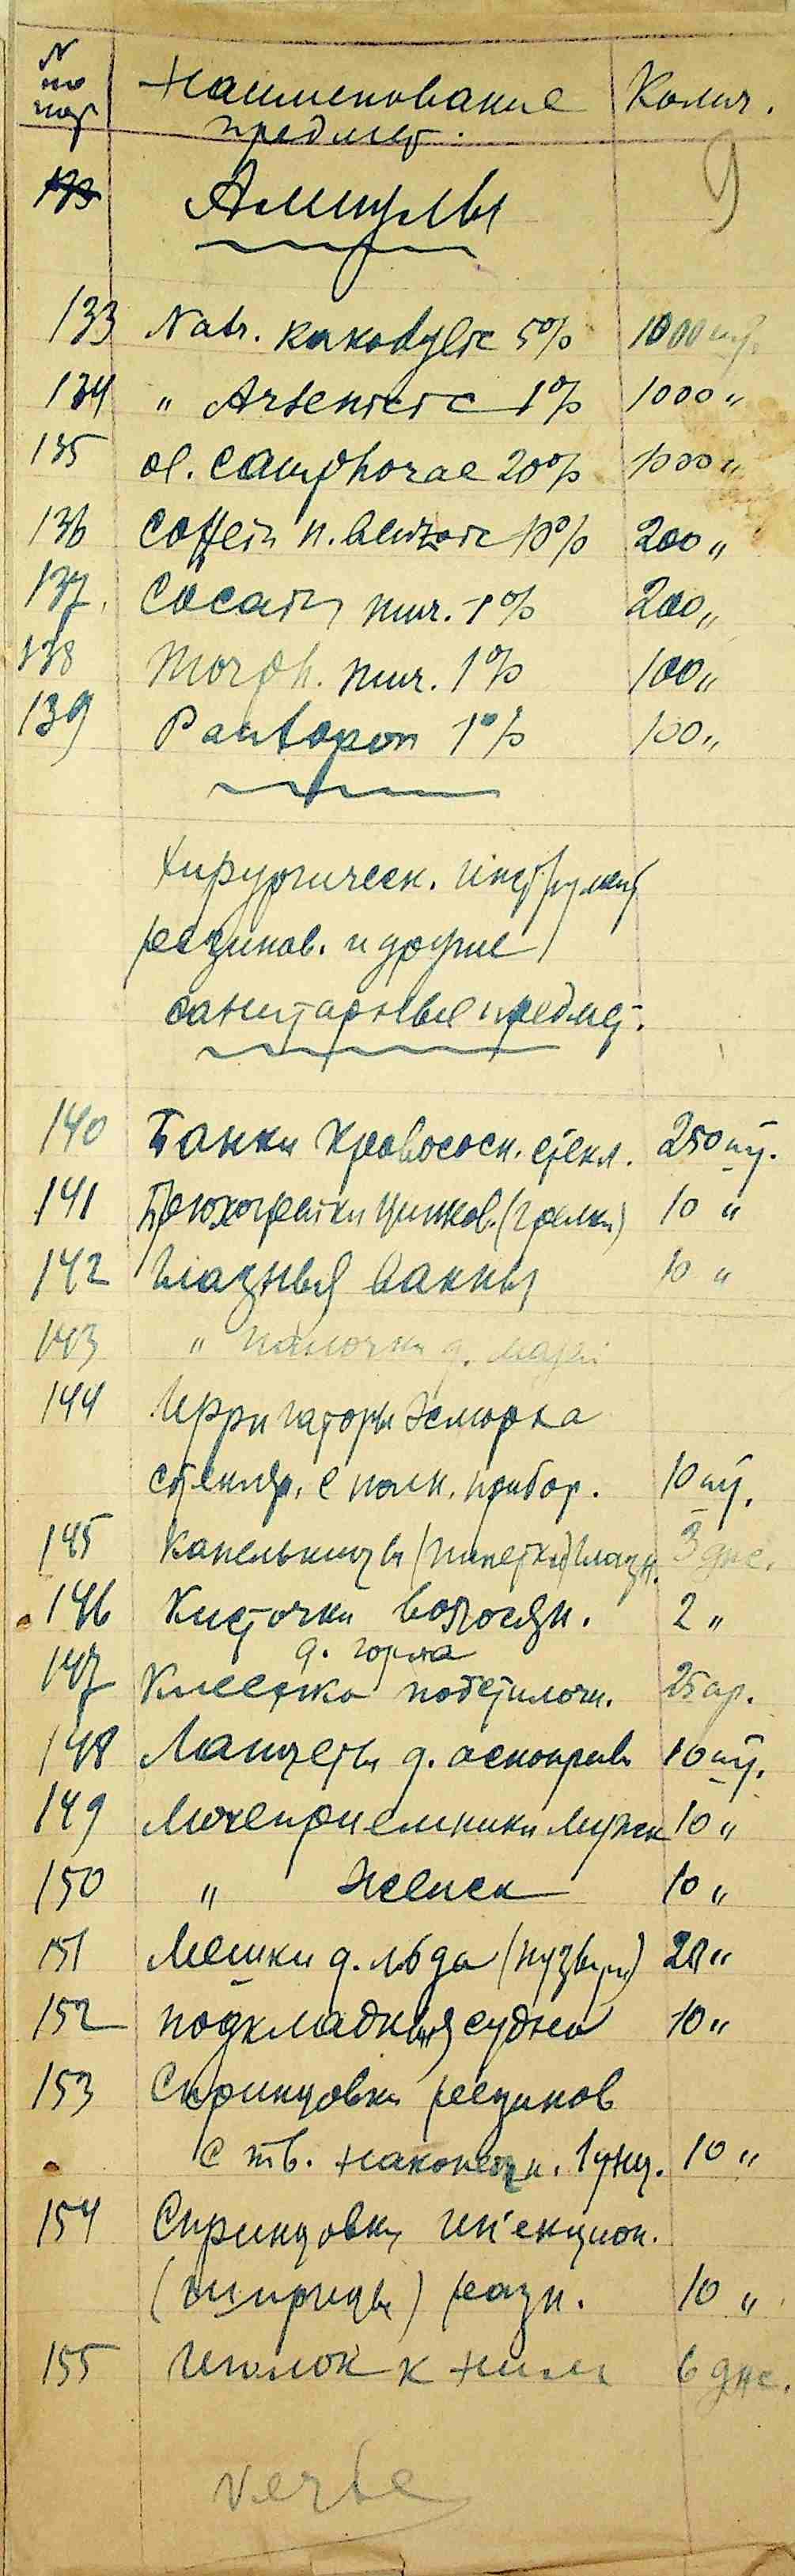 N по пор Наименование предмет. Колич.
9
133 Ампулы
133 Natr. kakodylic 5% 1000 шт.
134 " Arsenicic 1% 1000 "
135 ol. Camphorae 20% 1000 "
136 Coffein n. benzoic 10% 200 "
137. Cocain mur. 1% 200 "
138 Morph. mur. 1% 100 "
139 Pantopon 1% 100 "
Хирургическ. инструмент
резинов. и другие
санитарные предмет.
140 Банки кровососн. стекл. 250 шт.
141 Брюхогрелки цинков. (грелки) 10 "
142 Глазныя ванны 10 "
143 " палочки д. мази
144 Ирригаторы Эсмарха
стеклян. с полн. прибор. 10 шт.
145 Капельницы (пипетки) глазн. 3 дюж.
146 Кисточки волосян. 2 "
д. горла
147 Клеенка подстилочн. 25 ар.
148 Ланцеты д. оспоприв 10 шт.
149 Мочеприемники мужск 10 "
150 " женск 10 "
151 Мешки д. льда (пузыри) 20 "
152 подкладныя судна 10 "
153 Спринцовки резинов
с тв. наконечн. 1 унц. 10 "
154 Спринцовки ин'екцион.
(шприцы) разн. 10 "
155 Иголок к ним 6 дюж.
verte